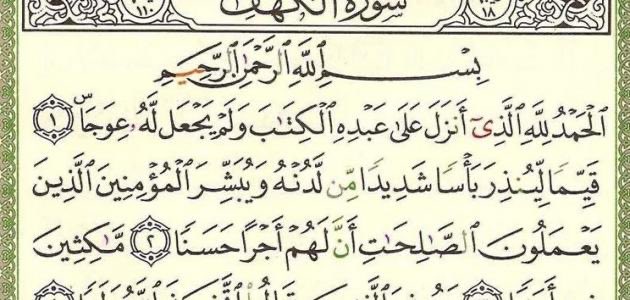 سُورَةُ الْكَهْفِ
١٨
١١٠
بِسْمِ ٱللَّهِ ٱلرَّحْمَٰنِ ٱلرَّحِيمِ
ٱلْحَمْدُ لِلَّهِ ٱلَّذِىٓ أَنزَلَ عَلَىٰ عَبْدِهِ ٱلْكِتَٰبَ وَلَمْ يَجْعَل لَّهُۥ عِوَجَاۜ ١
قَيِّمًا لِّيُنذِرَ بَأْسًا شَدِيدًا مِّن لَّدُنْهُ وَيُبَشِّرَ ٱلْمُؤْمِنِينَ ٱلَّذِينَ
يَعْمَلُونَ ٱلصَّٰلِحَٰتِ أَنَّ لَهُمْ أَجْرًا حَسَنًا ٢ مَّٰكِثِينَ